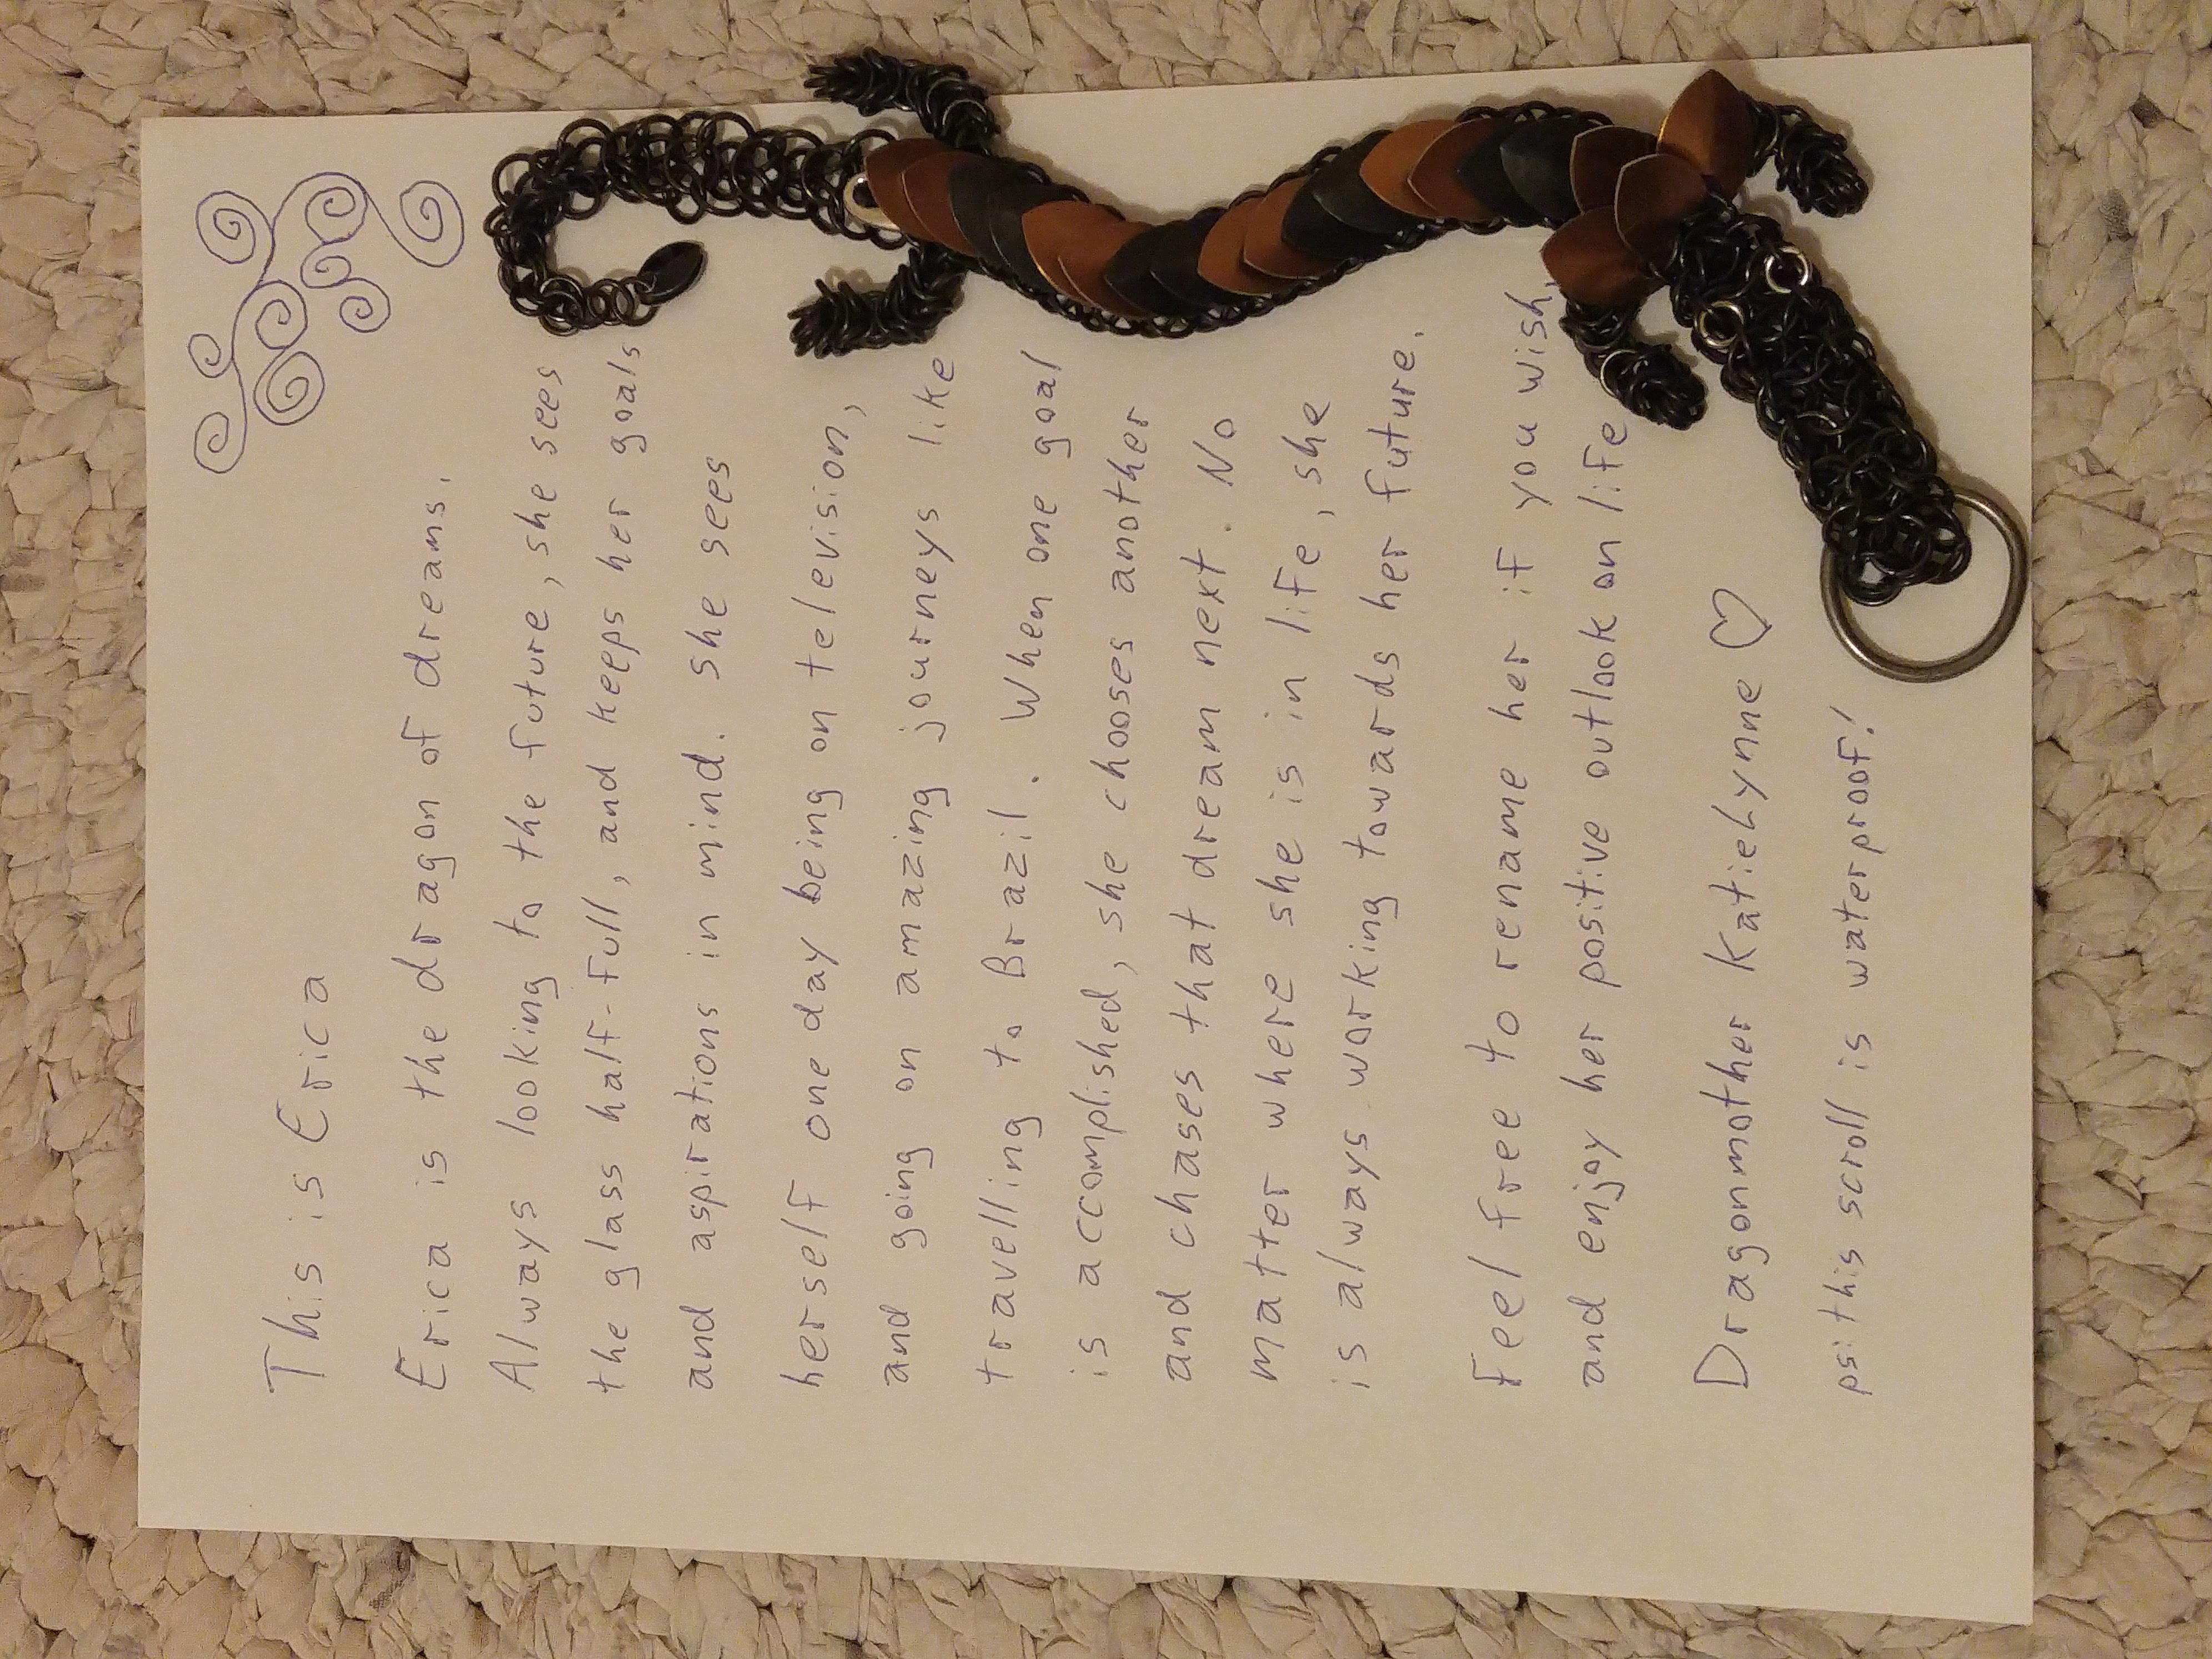 This is Erica
Erica is the dragon of dreams.
Always looking to the future, she sees
the glass half-full, and keeps her goals
and aspirations in mind. She sees
herself one day being on television,
and going on amazing journeys like
travelling to Brazil. When one goal
is accomplished, she chooses another
and chases that dream next. No
matter where she is in life, she
is always working towards her future.
Feel free to rename her if you wish,
and enjoy her positive outlook on life
Dragonmother Katiehynne ♡
ps: this scroll is waterproof!